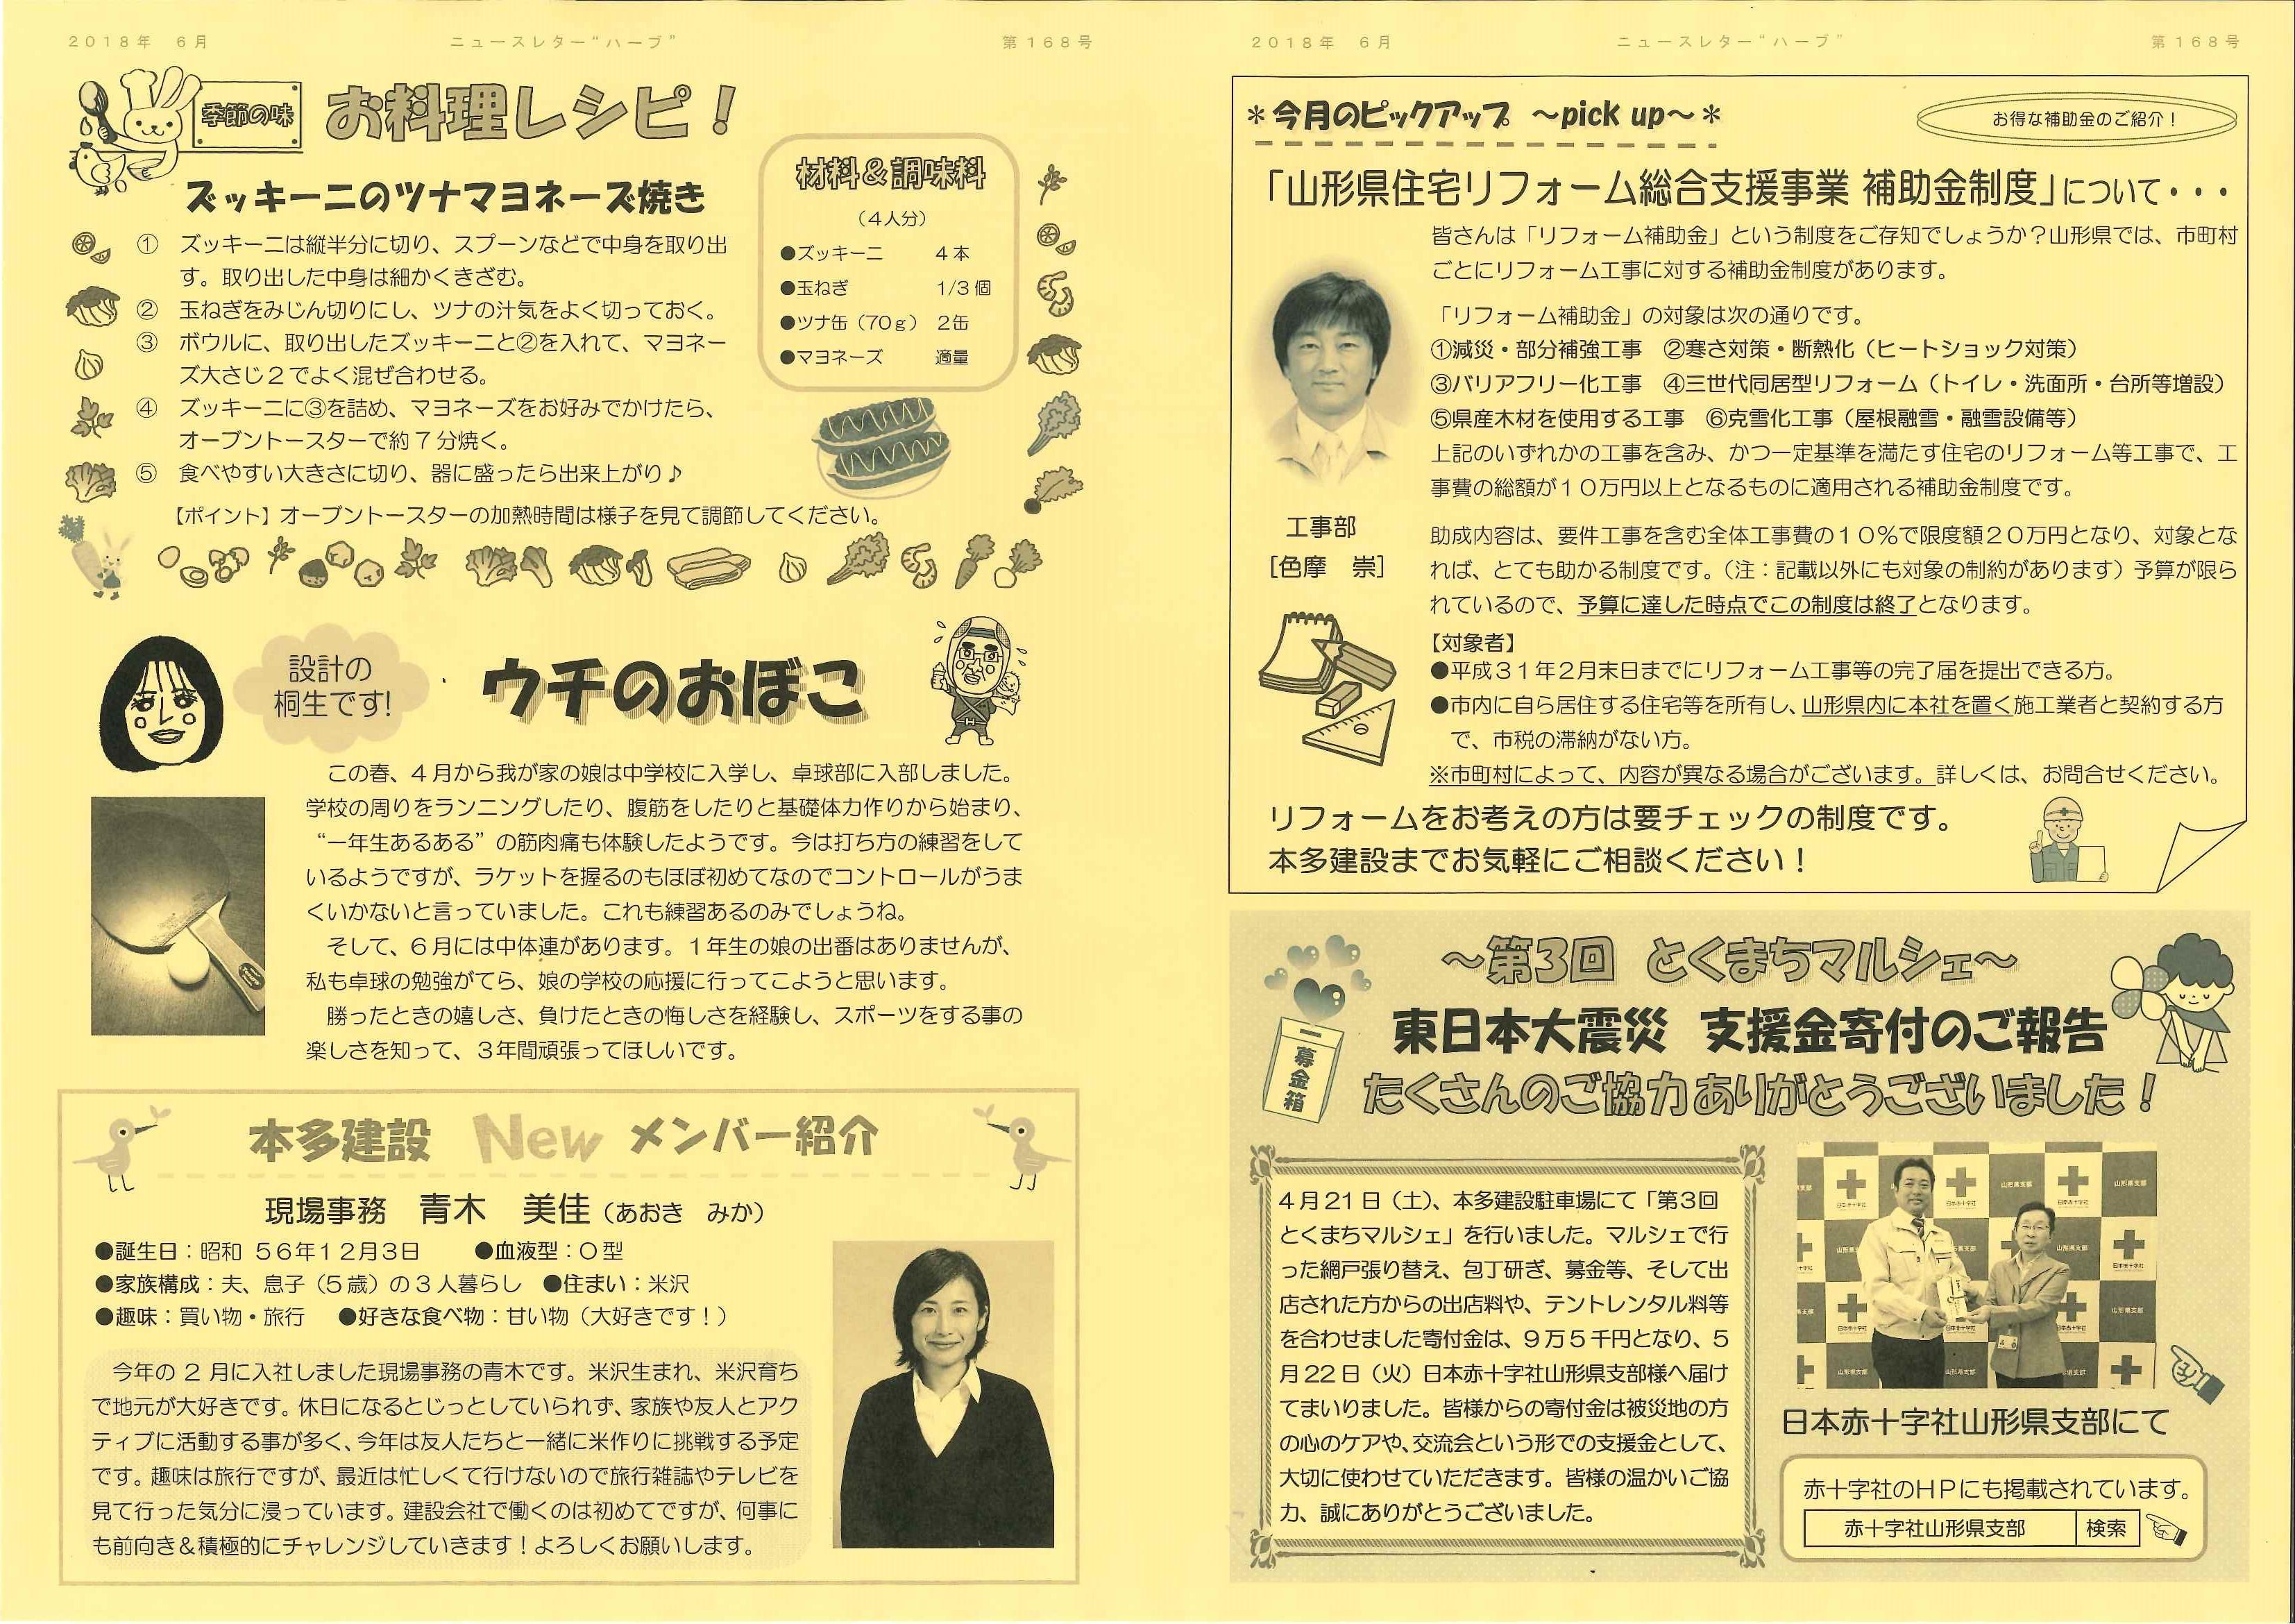 2018年 6月
ニュースレター“ハーブ”
第168号
季節の味
お料理レシピ！
ズッキーニのツナマヨネーズ焼き
① ズッキーニは縦半分に切り、スプーンなどで中身を取り出
す。取り出した中身は細かくきざむ。
② 玉ねぎをみじん切りにし、ツナの汁気をよく切っておく。
③ ボウルに、取り出したズッキーニと②を入れて、マヨネー
ズ大さじ2でよく混ぜ合わせる。
④ ズッキーニに③を詰め、マヨネーズをお好みでかけたら、
オーブントースターで約7分焼く。
⑤ 食べやすい大きさに切り、器に盛ったら出来上がり♪
【ポイント】オーブントースターの加熱時間は様子を見て調節してください。
材料＆調味料
（4人分）
●ズッキーニ 4本
●玉ねぎ 1/3個
●ツナ缶（70g） 2缶
●マヨネーズ 適量
設計の
桐生です!
ウチのおぼこ
この春、4月から我が家の娘は中学校に入学し、卓球部に入部しました。
学校の周りをランニングしたり、腹筋をしたりと基礎体力作りから始まり、
“一年生あるある”の筋肉痛も体験したようです。今は打ち方の練習をして
いるようですが、ラケットを握るのもほぼ初めてなのでコントロールがうま
くいかないと言っていました。これも練習あるのみでしょうね。
そして、6月には中体連があります。1年生の娘の出番はありませんが、
私も卓球の勉強がてら、娘の学校の応援に行ってこようと思います。
勝ったときの嬉しさ、負けたときの悔しさを経験し、スポーツをする事の
楽しさを知って、3年間頑張ってほしいです。
本多建設 New メンバー紹介
現場事務 青木 美佳（あおき みか）
●誕生日：昭和 56年12月3日 ●血液型：O型
●家族構成：夫、息子（5歳）の3人暮らし ●住まい：米沢
●趣味：買い物・旅行 ●好きな食べ物：甘い物（大好きです！）
今年の2月に入社しました現場事務の青木です。米沢生まれ、米沢育ち
で地元が大好きです。休日になるとじっとしていられず、家族や友人とアク
ティブに活動する事が多く、今年は友人たちと一緒に米作りに挑戦する予定
です。趣味は旅行ですが、最近は忙しくて行けないので旅行雑誌やテレビを
見て行った気分に浸っています。建設会社で働くのは初めてですが、何事に
も前向き＆積極的にチャレンジしていきます！よろしくお願いします。
2018年 6月
ニュースレター“ハーブ”
第168号
＊今月のピックアップ ～pick up～＊
お得な補助金のご紹介！
「山形県住宅リフォーム総合支援事業 補助金制度」について・・・
皆さんは「リフォーム補助金」という制度をご存知でしょうか？山形県では、市町村
ごとにリフォーム工事に対する補助金制度があります。
「リフォーム補助金」の対象は次の通りです。
①減災・部分補強工事 ②寒さ対策・断熱化（ヒートショック対策）
③バリアフリー化工事 ④三世代同居型リフォーム（トイレ・洗面所・台所等増設）
⑤県産木材を使用する工事 ⑥克雪化工事（屋根融雪・融雪設備等）
上記のいずれかの工事を含み、かつ一定基準を満たす住宅のリフォーム等工事で、工
事費の総額が10万円以上となるものに適用される補助金制度です。
工事部
[色摩 崇]
助成内容は、要件工事を含む全体工事費の10％で限度額20万円となり、対象とな
れば、とても助かる制度です。（注：記載以外にも対象の制約があります）予算が限ら
れているので、予算に達した時点でこの制度は終了となります。
【対象者】
●平成31年2月末日までにリフォーム工事等の完了届を提出できる方。
●市内に自ら居住する住宅等を所有し、山形県内に本社を置く施工業者と契約する方
で、市税の滞納がない方。
※市町村によって、内容が異なる場合がございます。詳しくは、お問合せください。
リフォームをお考えの方は要チェックの制度です。
本多建設までお気軽にご相談ください！
～第3回 とくまちマルシェ～
東日本大震災 支援金寄付のご報告
たくさんのご協力ありがとうございました！
募金箱
4月21日（土）、本多建設駐車場にて「第3回
とくまちマルシェ」を行いました。マルシェで行
った網戸張り替え、包丁研ぎ、募金等、そして出
店された方からの出店料や、テントレンタル料等
を合わせました寄付金は、9万5千円となり、5
月22日（火）日本赤十字社山形県支部様へ届け
てまいりました。皆様からの寄付金は被災地の方
の心のケアや、交流会という形での支援金として、
大切に使わせていただきます。皆様の温かいご協
力、誠にありがとうございました。
日本赤十字社山形県支部にて
赤十字社のHPにも掲載されています。
赤十字社山形県支部 検索